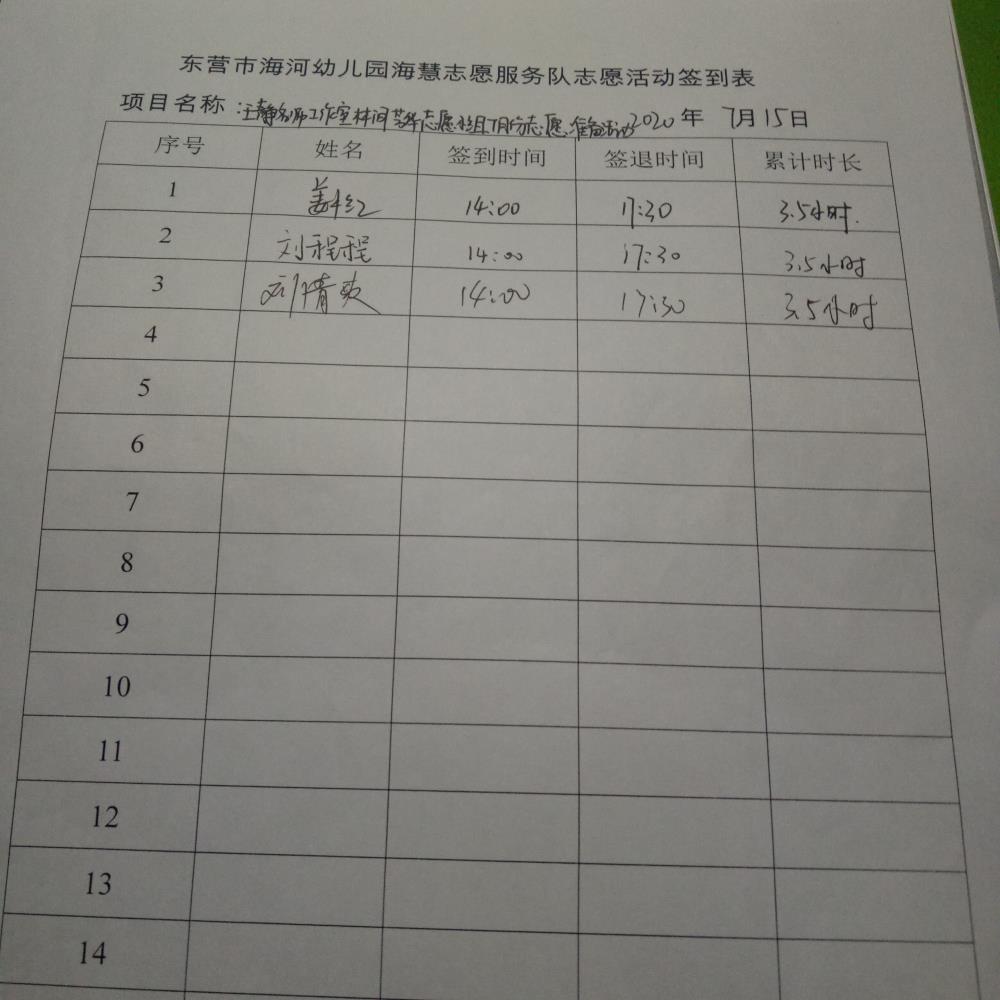 东营市海河幼儿园海慧志愿服务队志愿活动签到表
项目名称:王静名师工作室林间芳华志愿小组7月份志愿准备活动2020年7月15日
序号 姓名 签到时间 签退时间 累计时长
1 姜红 14:00 17:30 3.5小时.
2 刘程程 14:00 17:30 3.5小时
3 刘清爽 14:00 17:30 3.5小时
4
5
6
7
8
9
10
11
12
13
14